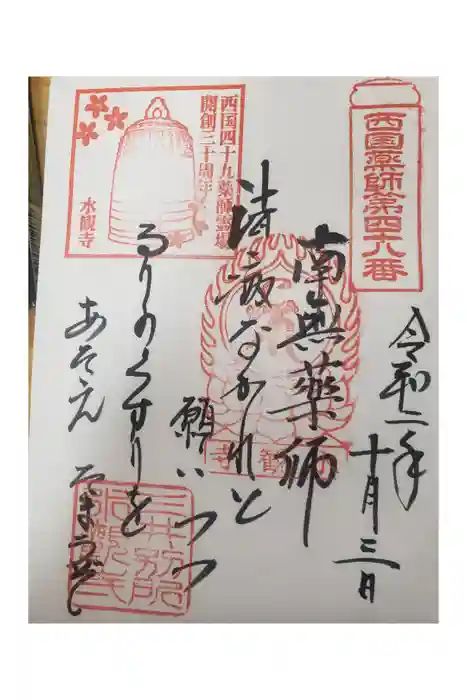 西国薬師第四十八番
令和二年
十月三日
南無薬師
諸病なかれと
願いつつ
るりのくすりを
あたえ
西国四十九薬師霊場
開創三十周年
水観寺
三井別所
水観寺